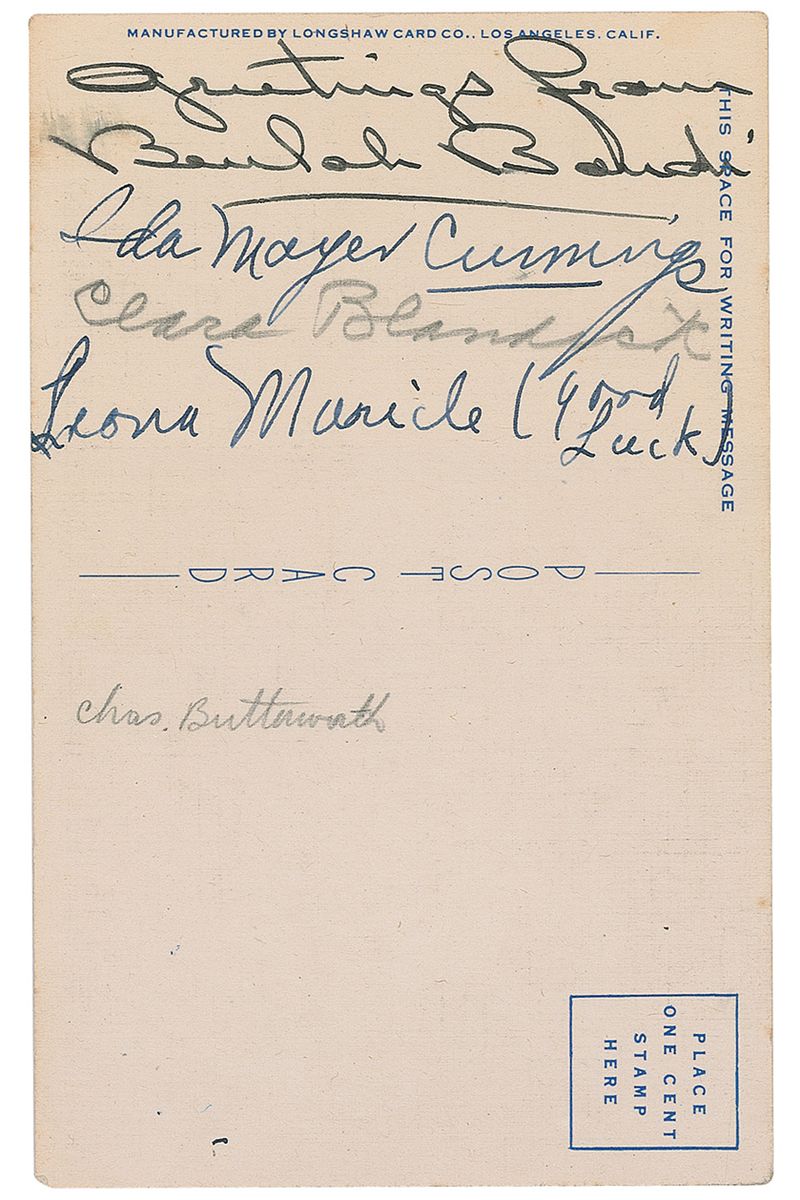 MANUFACTURED BY LONGSHAW CARD CO., LOS ANGELES, CALIF.
Greetings from
Beulah Bondi
Ida Mayer Cummings
Clara Blandick
Leona Maricle (Good
Luck)
THIS SPACE FOR WRITING MESSAGE
POST CARD
Chas. Butterworth
PLACE
ONE CENT
STAMP
HERE